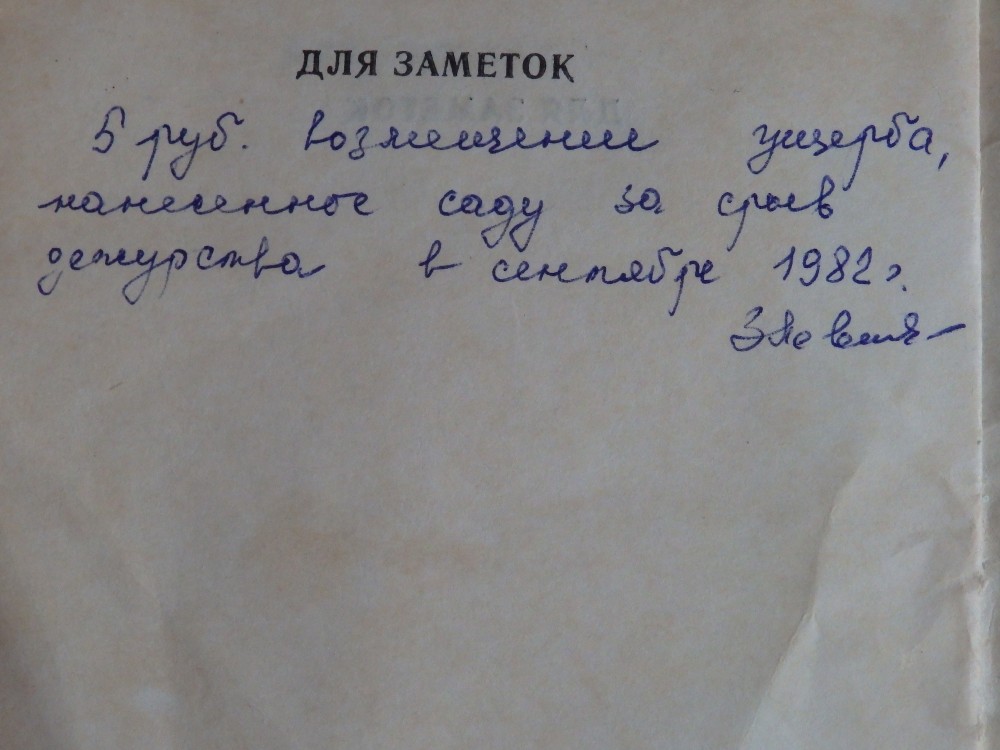 ДЛЯ ЗАМЕТОК
5 руб. возмещение ущерба,
нанесенное саду за срыв
дежурства в сентябре 1982 г.